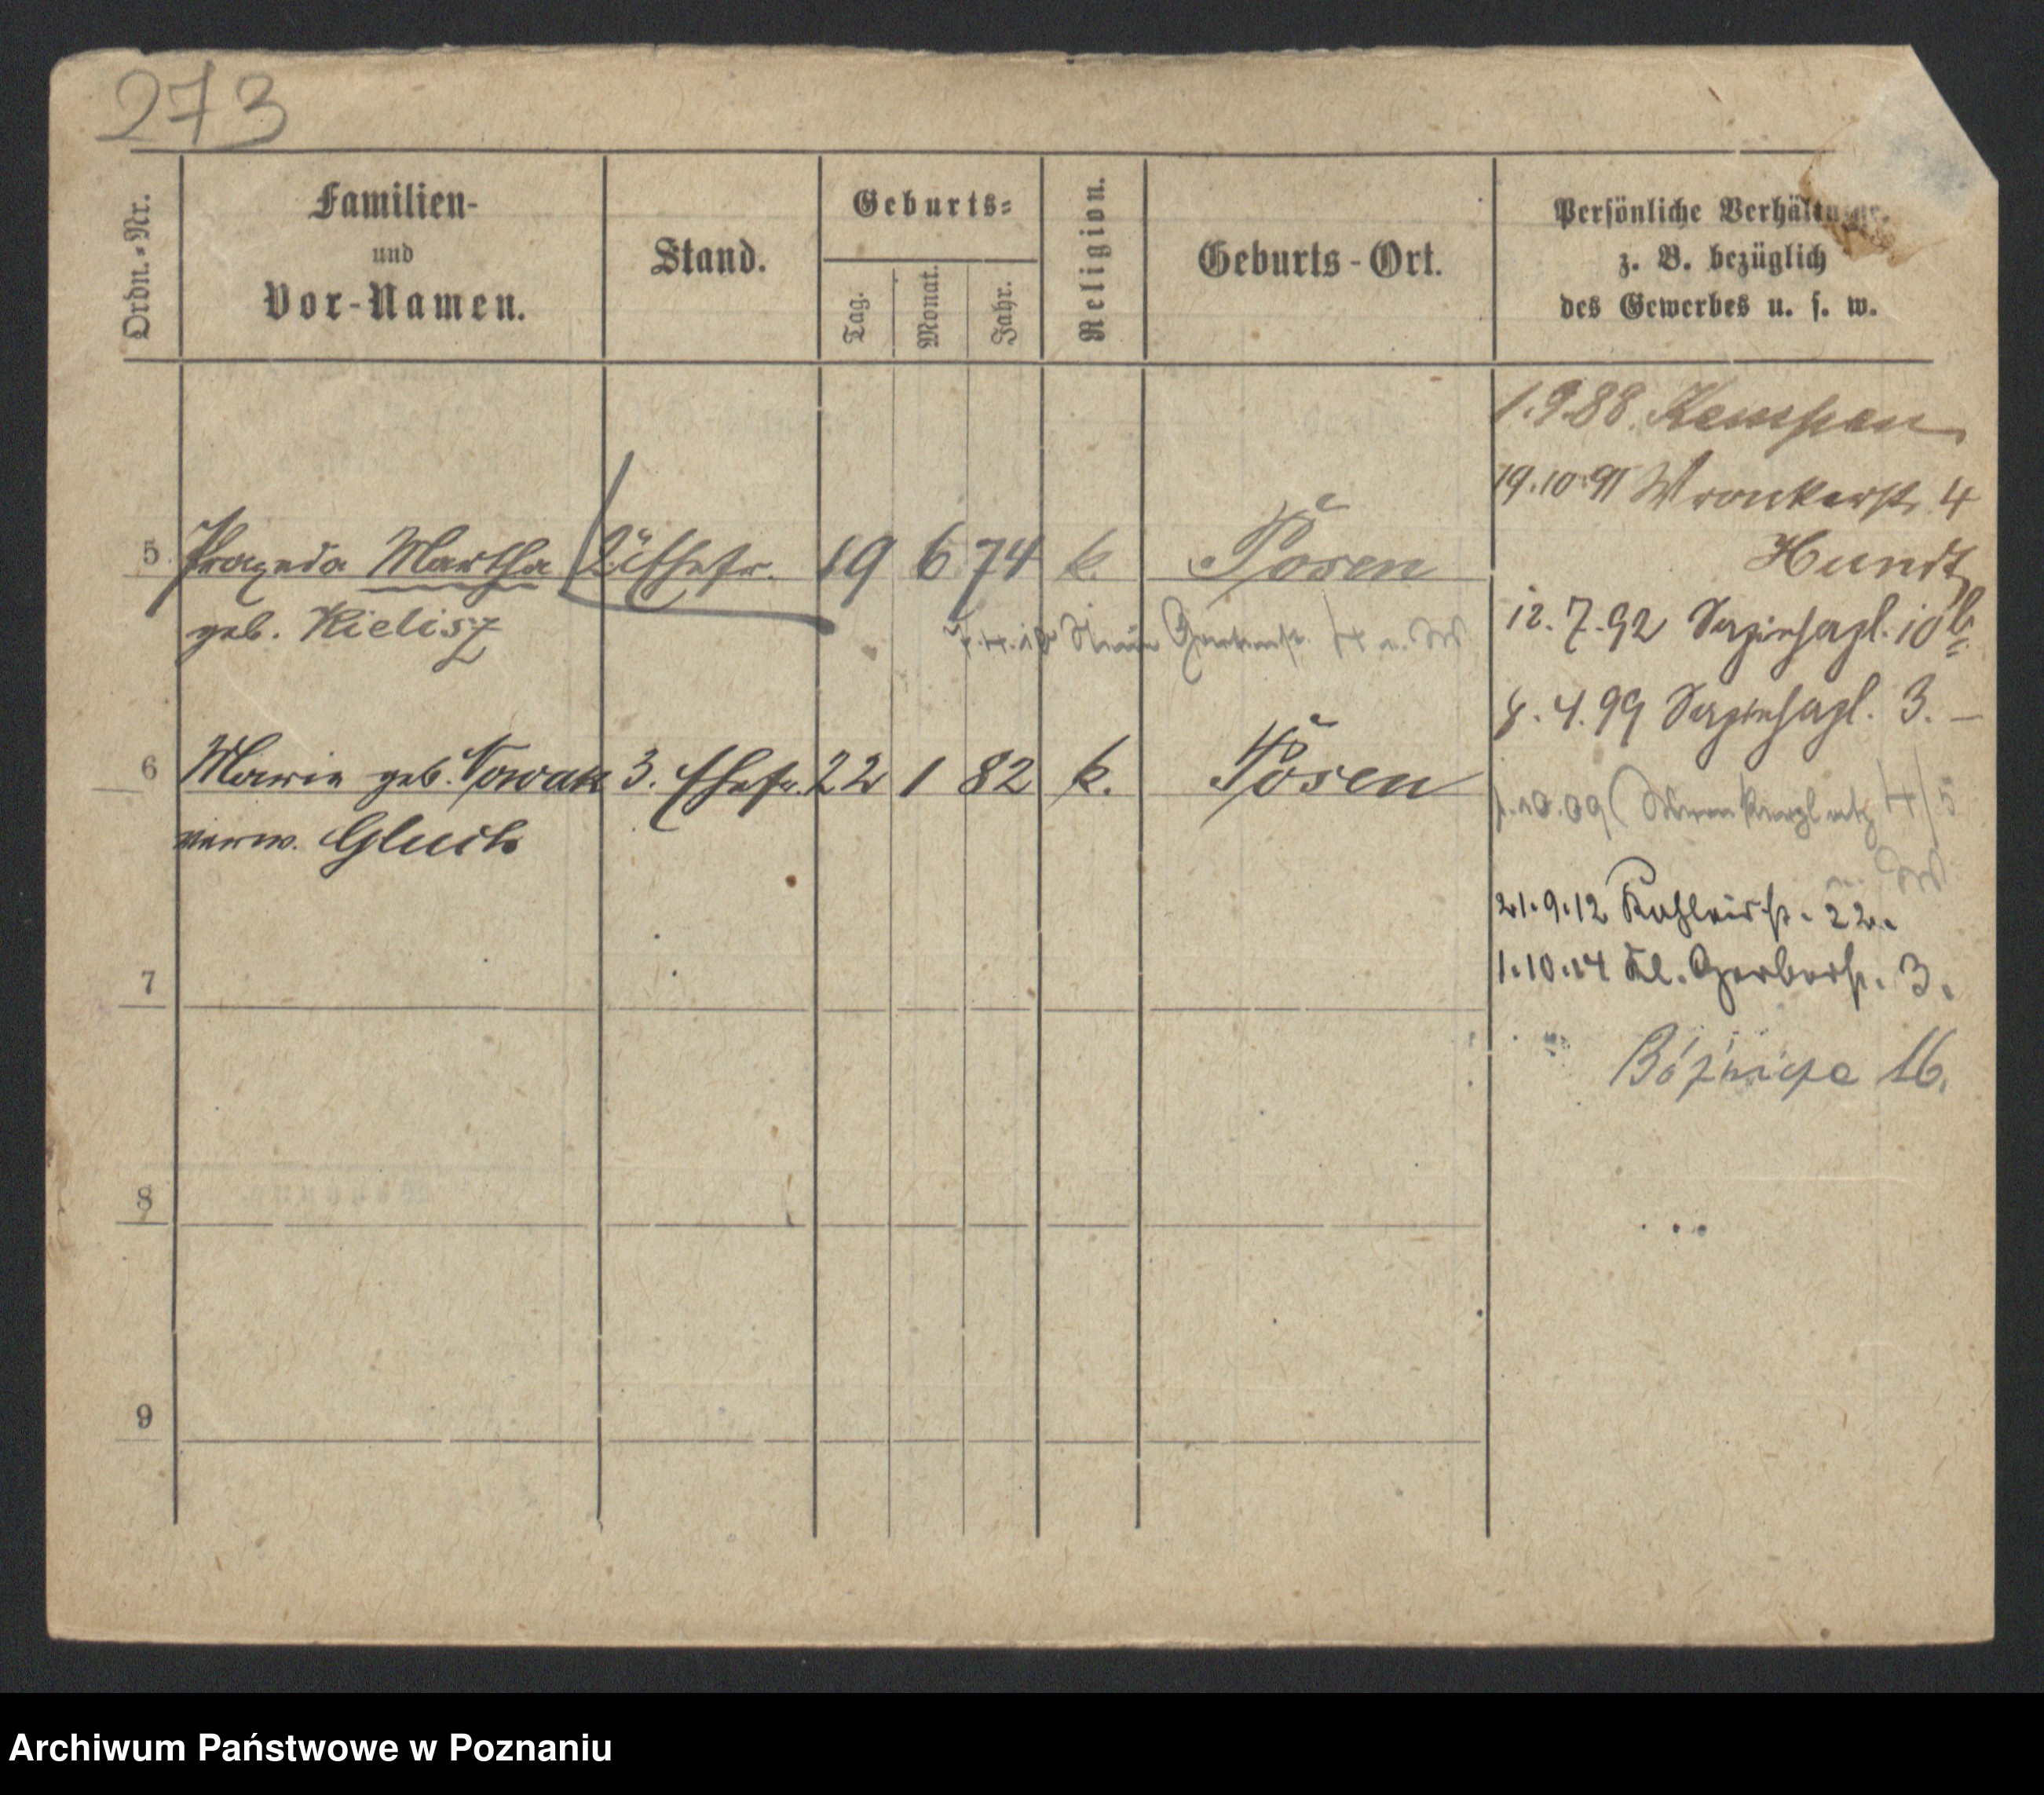 273
Ordn.-Nr.
Familien-
und
Vor-Namen.
Stand.
Geburts-
Tag.
Monat.
Jahr.
Religion.
Geburts-Ort.
Persönliche Verhältnisse.
z. B. bezüglich
des Gewerbes u. s. w.
1.9.88. Kempen
19.10.91 Wronkerstr. 4
Hundt
5 Praxeda Martha Ehefr. 19 6 74 k. Posen
geb. Kielisz
12.7.92 Sapiehapl. 10b
8.4.99 Sapiehapl. 3.
6 Marie geb. Nowak 3. Ehefr. 22 1 82 k. Posen
verw. Gluch
10.09 4/5
21.9.12 22.
1.10.14 Kl. Gerberstr. 3.
7
Bóżnicza 16.
8
9
Archiwum Państwowe w Poznaniu